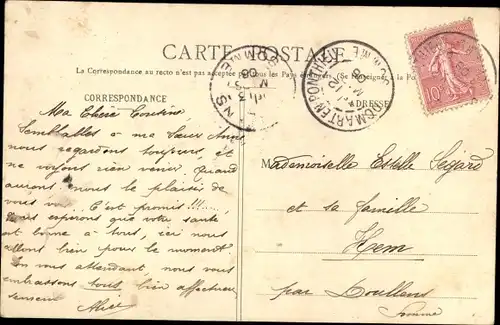 CARTE POSTALE
La Correspondance au recto n'est pas acceptée par tous les Pays étrangers. (Se renseigner à la Po
CORRESPONDANCE
ADRESSE
DOMART EN PONTHIEU
SOMME
10
Ma Chère Cousine,
Semblables à ma Sœur Anne
nous regardons toujours, et
ne voyons rien venir. Quand
aurons nous le plaisir de
vous voir... C'est promis!!!...
nous espérons que votre santé
est bonne à tous, ici nous
allons bien pour le moment.
En vous attendant, nous vous
embrassons tous bien affectueu
sement
Alice
Mademoiselle Estelle Ségard
et sa famille
Hem
par Doullens
Somme